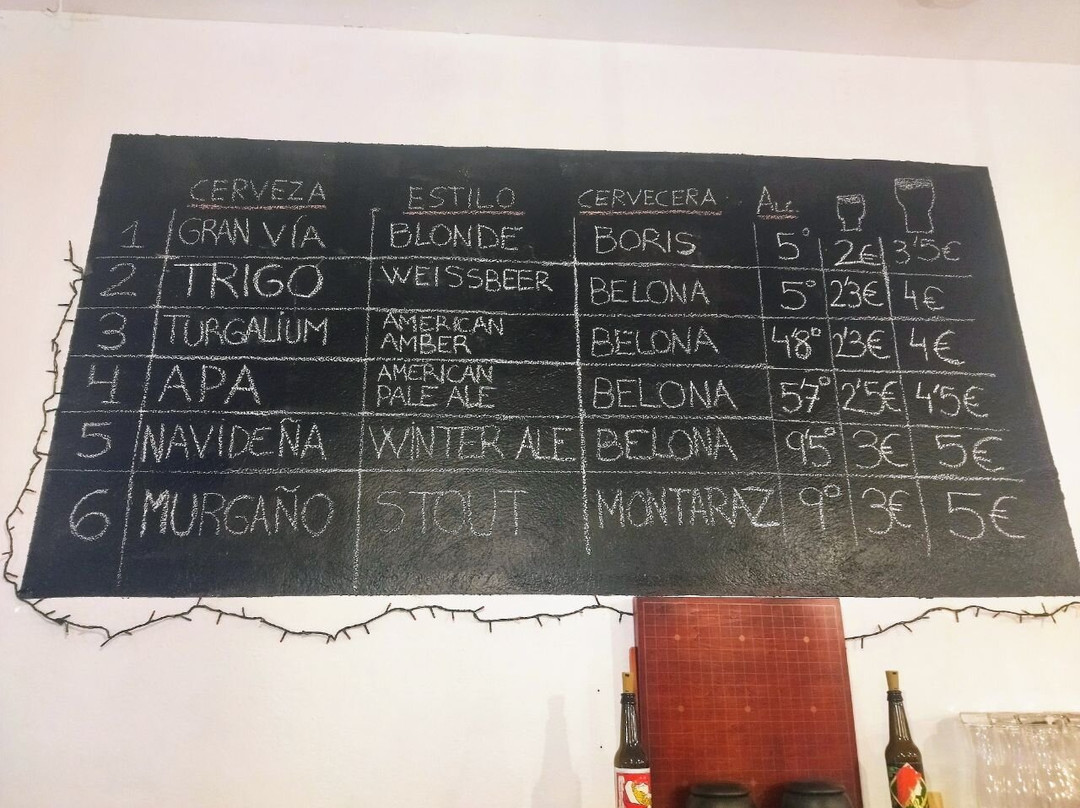 CERVEZA ESTILO CERVECERA ALC
1 GRAN VÍA BLONDE BORIS 5° 2€ 3'5€
2 TRIGO WEISSBEER BELONA 5° 2'3€ 4€
3 TURGALIUM AMERICAN AMBER BELONA 4'8° 2'3€ 4€
4 APA AMERICAN PALE ALE BELONA 5'7° 2'5€ 4'5€
5 NAVIDEÑA WINTER ALE BELONA 9'5° 3€ 5€
6 MURGAÑO STOUT MONTARAZ 9° 3€ 5€